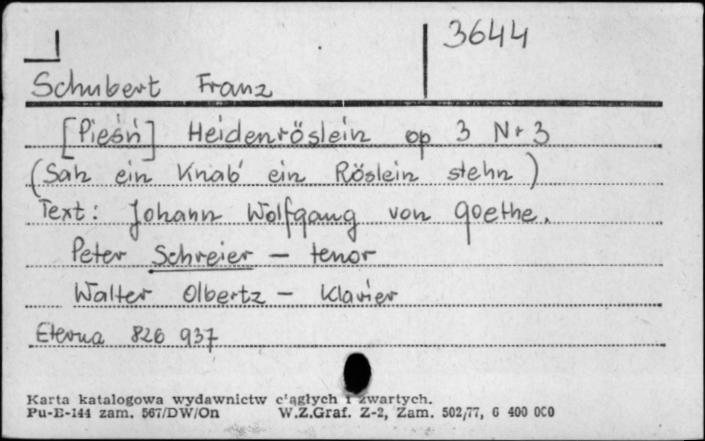 3644
Schubert Franz
[Pieśń] Heidenröslein op 3 Nr 3
(Sah ein Knab' ein Röslein stehn)
Text: Johann Wolfgang von Goethe.
Peter Schreier – tenor
Walter Olbertz – Klavier
Eterna 826 937
Karta katalogowa wydawnictw c'ągłych i zwartych.
Pu-E-144 zam. 567/DW/On W.Z.Graf. Z-2, Zam. 502/77, 6 400 000